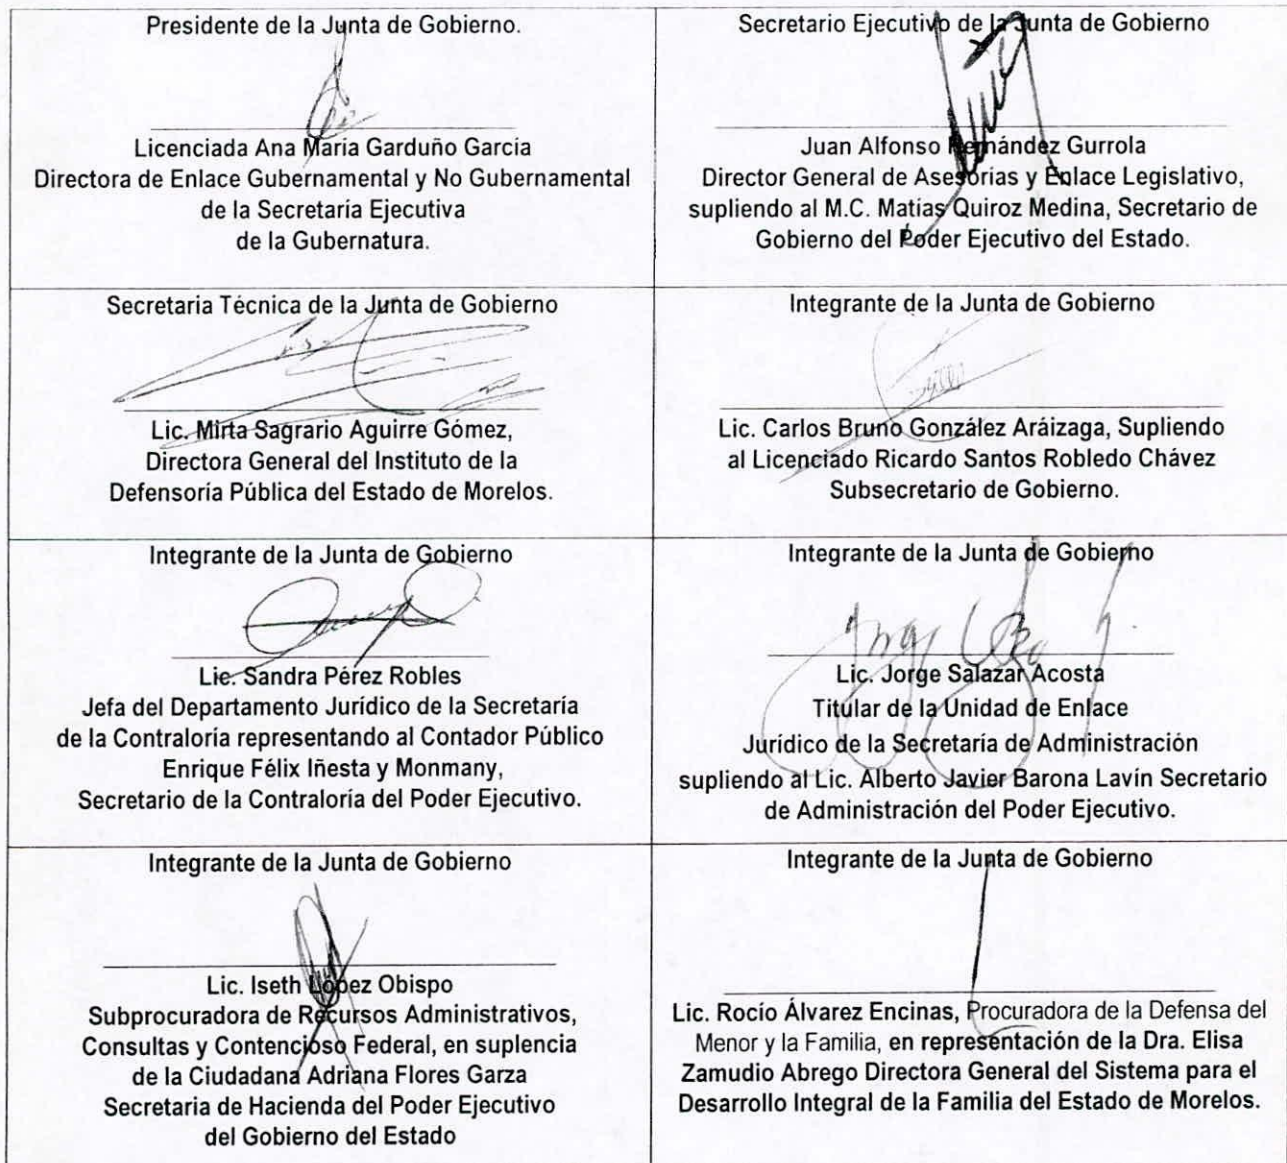 Presidente de la Junta de Gobierno.
Licenciada Ana María Garduño García
Directora de Enlace Gubernamental y No Gubernamental
de la Secretaría Ejecutiva
de la Gubernatura.
Secretario Ejecutivo de la Junta de Gobierno
Juan Alfonso Hernández Gurrola
Director General de Asesorias y Enlace Legislativo,
supliendo al M.C. Matías Quiroz Medina, Secretario de
Gobierno del Poder Ejecutivo del Estado.
Secretaria Técnica de la Junta de Gobierno
Lic. Mirta Sagrario Aguirre Gómez,
Directora General del Instituto de la
Defensoría Pública del Estado de Morelos.
Integrante de la Junta de Gobierno
Lic. Carlos Bruno González Aráizaga, Supliendo
al Licenciado Ricardo Santos Robledo Chávez
Subsecretario de Gobierno.
Integrante de la Junta de Gobierno
Lic. Sandra Pérez Robles
Jefa del Departamento Jurídico de la Secretaría
de la Contraloría representando al Contador Público
Enrique Félix Iñesta y Monmany,
Secretario de la Contraloría del Poder Ejecutivo.
Integrante de la Junta de Gobierno
Lic. Jorge Salazar Acosta
Titular de la Unidad de Enlace
Jurídico de la Secretaría de Administración
supliendo al Lic. Alberto Javier Barona Lavín Secretario
de Administración del Poder Ejecutivo.
Integrante de la Junta de Gobierno
Lic. Iseth López Obispo
Subprocuradora de Recursos Administrativos,
Consultas y Contencioso Federal, en suplencia
de la Ciudadana Adriana Flores Garza
Secretaria de Hacienda del Poder Ejecutivo
del Gobierno del Estado
Integrante de la Junta de Gobierno
Lic. Rocío Álvarez Encinas, Procuradora de la Defensa del
Menor y la Familia, en representación de la Dra. Elisa
Zamudio Abrego Directora General del Sistema para el
Desarrollo Integral de la Familia del Estado de Morelos.